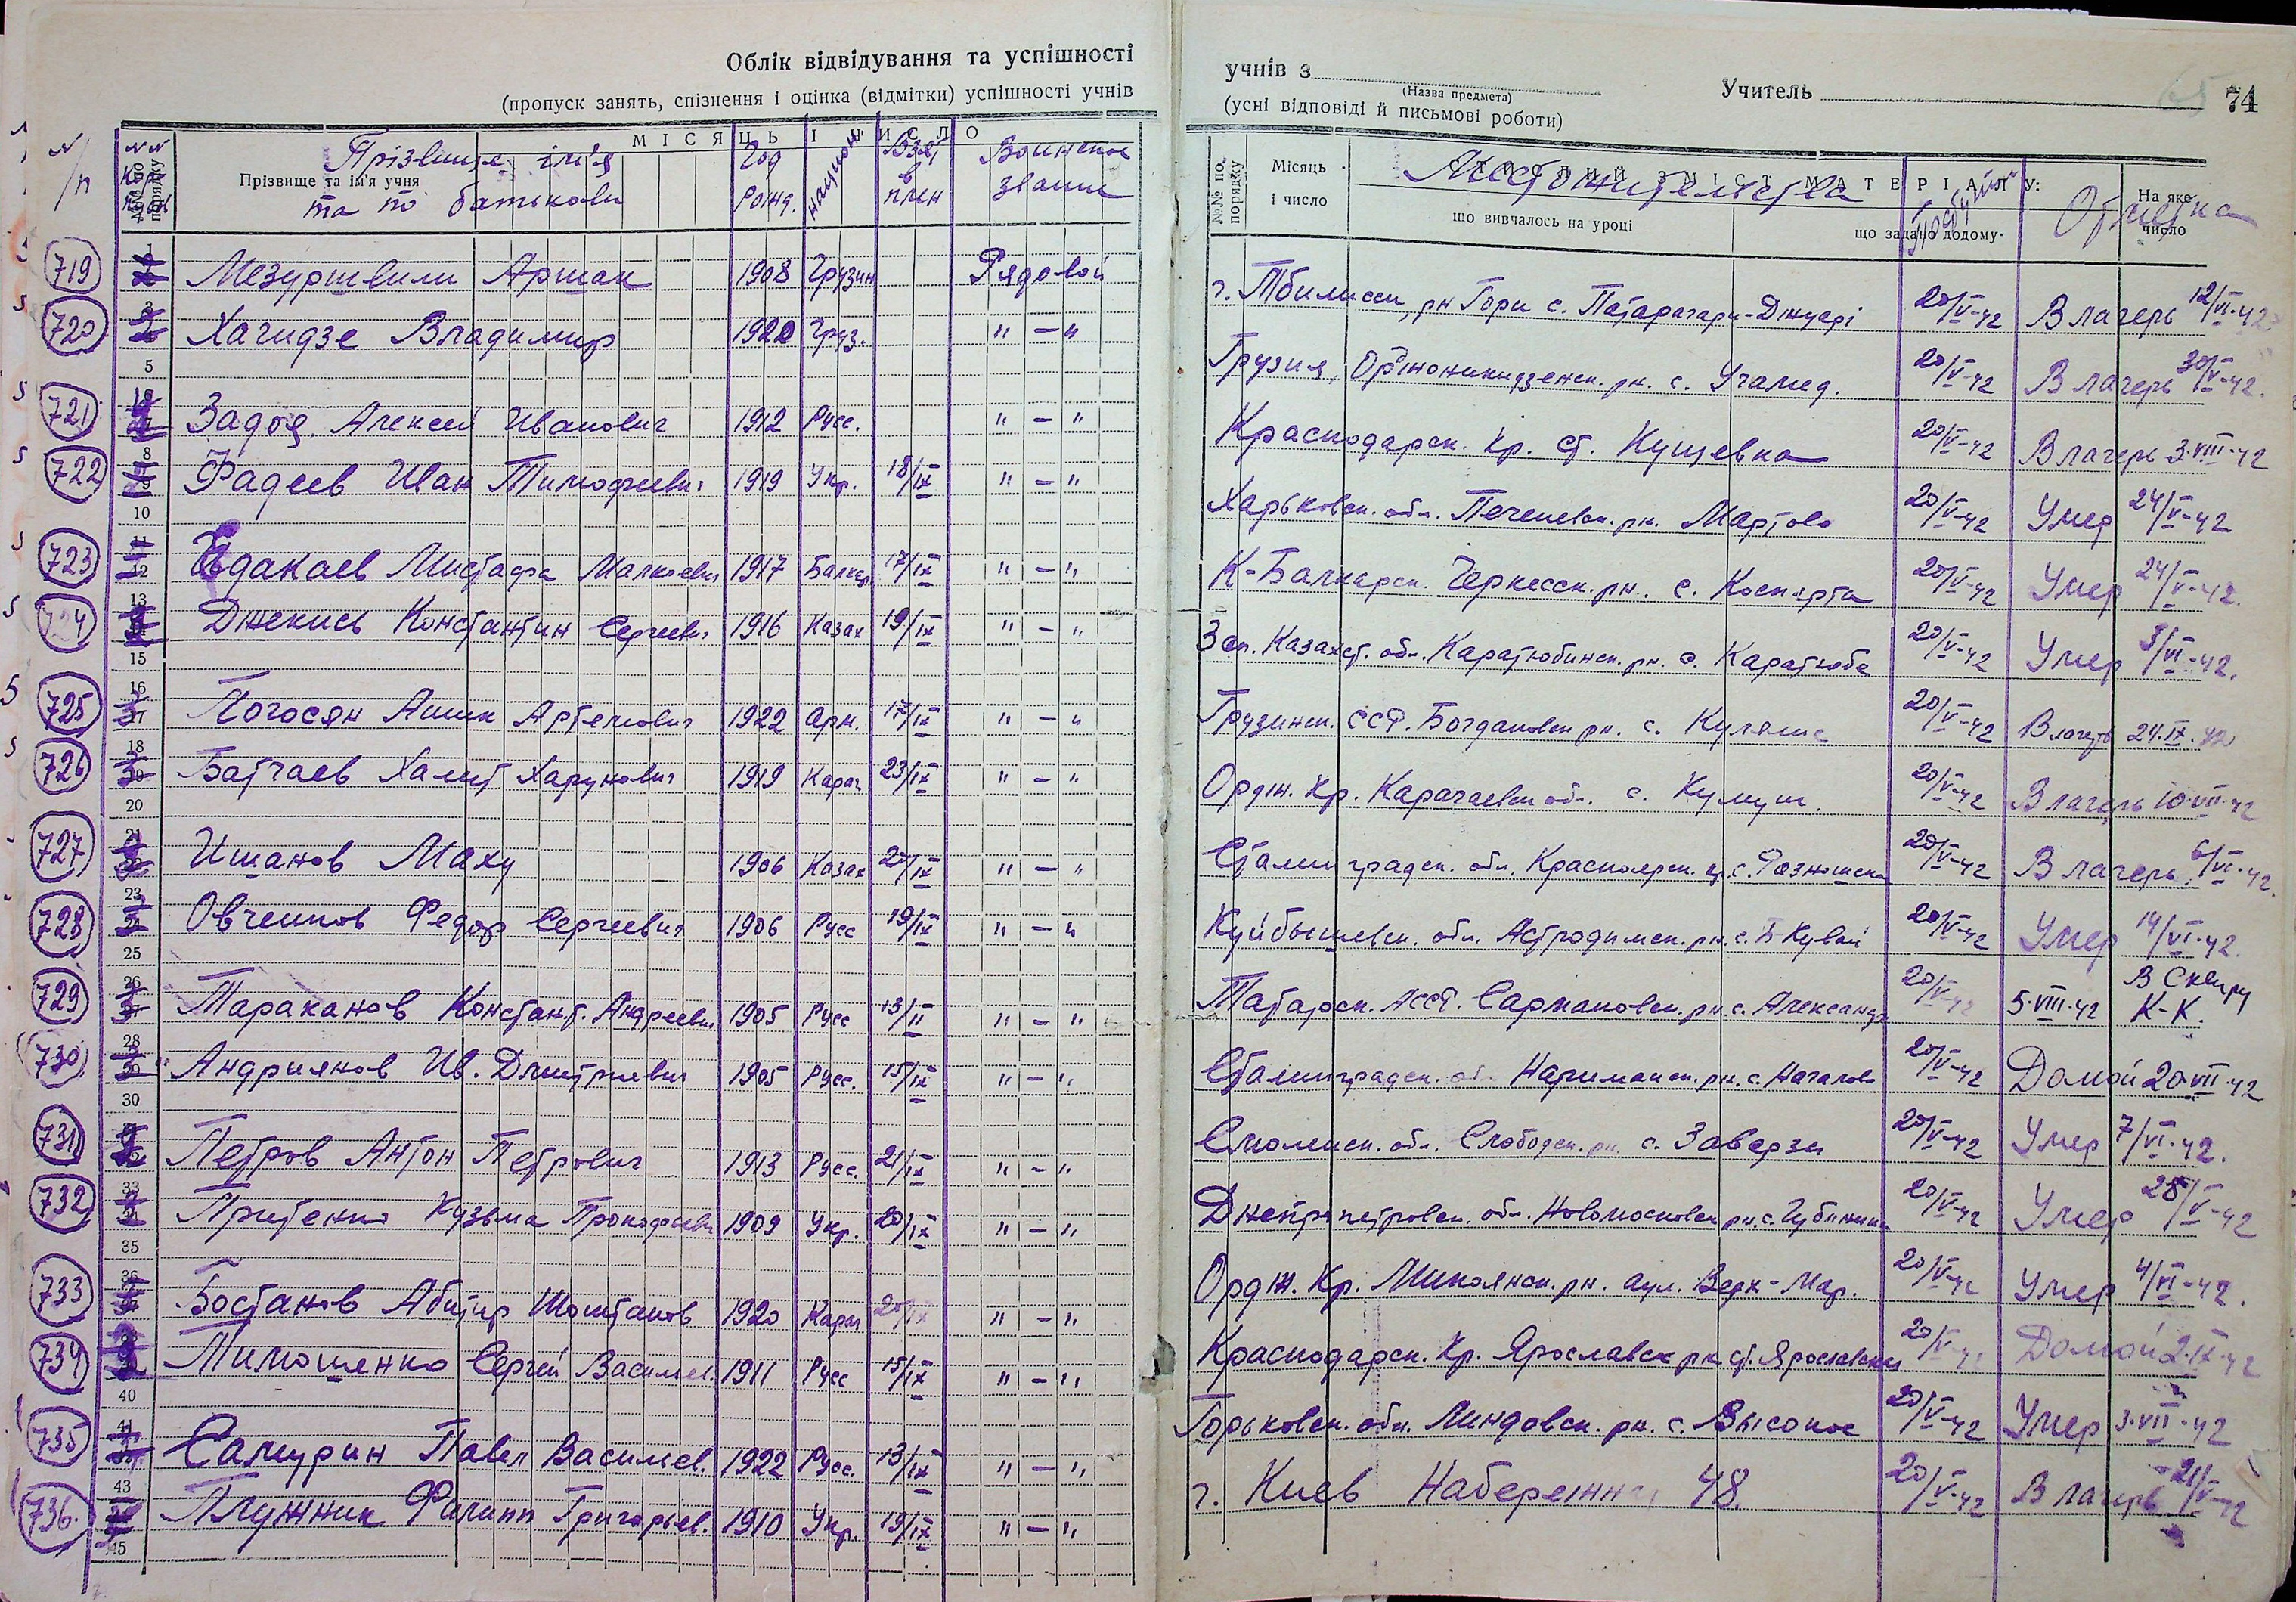 Облік відвідування та успішності
(пропуск занять, спізнення і оцінка (відмітки) успішності учнів
МІСЯЦЬ І ЧИСЛО
N/п
Прізвище та ім'я учня
Прізвище, ім'я та по батькови
Год рожд.
национ.
Взят в плен
Воинское звание
719 Мезуршвили Аршак 1908 Грузин Рядовой
720 Хачидзе Владимир 1920 Груз. " — "
721 Задоя Алексей Иванович 1912 Русс. " — "
722 Фадеев Иван Тимофеевич 1919 Укр. 18/IX " — "
723 Едакаев Мистафа Малкоевич 1917 Балкар 17/IX " — "
724 Джекись Константин Сергеевич 1916 Казах 19/IX " — "
725 Погосян Ашик Артемович 1922 арм. 17/IX " — "
726 Батчаев Халит Харунович 1919 Карач 23/IX " — "
727 Ишанов Маху 1906 Казах 20/IX " — "
728 Овчеинов Федор Сергеевич 1906 Русс 19/IX " — "
729 Тараканов Констант. Андреевич 1905 Русс 13/II " — "
730 Андрияков Ив. Дмитриевич 1905 Русс. 15/IX " — "
731 Петров Антон Петрович 1913 Русс. 21/IX " — "
732 Притенко Кузьма Прокофьевич 1909 Укр. 20/IX " — "
733 Бостанов Абитир Шоштанов 1920 Карач 20/IX " — "
734 Тимошенко Сергей Васильев. 1911 Русс 15/IX " — "
735 Самурин Павел Васильев. 1922 Русс. 13/IX " — "
736. Плужник Филипп Григорьев. 1910 Укр. 19/IX " — "
учнів з
(Назва предмета)
Учитель
74
(усні відповіді й письмові роботи)
№№ по порядку
Місяць і число
Местожительства
ЗМІСТ МАТЕРІАЛУ:
що вивчалось на уроці
що задано додому
На яке число
Отметка
г. Тбилисси, рн Гори с. Патарагари-Джуарі 20/V-42 В лагерь 12/VI-42
Грузия, Орджоникидзенск. рн. с. Учамед. 20/V-42 В лагерь 30/V-42.
Краснодарск. кр. ст. Кущевка 20/V-42 В лагерь 3.VIII.42
Харьковск. обл. Печеневск. рн. Мартово 20/V-42 Умер 24/V-42
К-Балкарск. Черкесск. рн. с. Коспарта 20/V-42 Умер 24/V-42.
Зап. Казахст. обл. Каратюбинск. рн. с. Каратюба 20/V-42 Умер 3/VI-42.
Грузинск. ССР. Богдановск рн. с. Кулялис 20/V-42 В лагерь 24.IX.42
Ордж. Кр. Карачаевск обл. с. Кумуш. 20/V-42 В лагерь 10.VII.42
Сталинградск. обл. Красноярск. рн. с. Разношенск 20/V-42 В лагерь 6/VI-42.
Куйбышевск. обл. Астродимск. рн. с. Б Кувай 20/V-42 Умер 14/VI-42.
Татарск. АССР. Сармановск. рн. с. Александр 20/V-42 5.VIII.42 В Сквиру К-К.
Сталинградск. об. Нариманск. рн. с. Началово 20/V-42 Домой 20.VII.42
Смоленск. обл. Слободск. рн. с. Заверзи 20/V-42 Умер 7/VI-42.
Днепропетровск. обл. Новомосковск рн. с. Губиниха 20/V-42 Умер 28/V-42
Ордж. Кр. Микоянск. рн. аул. Верх-Мар. 20/V-42 Умер 4/VI-42.
Краснодарск. Кр. Ярославск рн ст. Ярославск 20/V-42 Домой 2.IX.42
Горьковск. обл. Линдовск. рн. с. Высокое 20/V-42 Умер 3.VII.42
г. Киев Набережн 48. 20/V-42 В лагерь 21/V-42